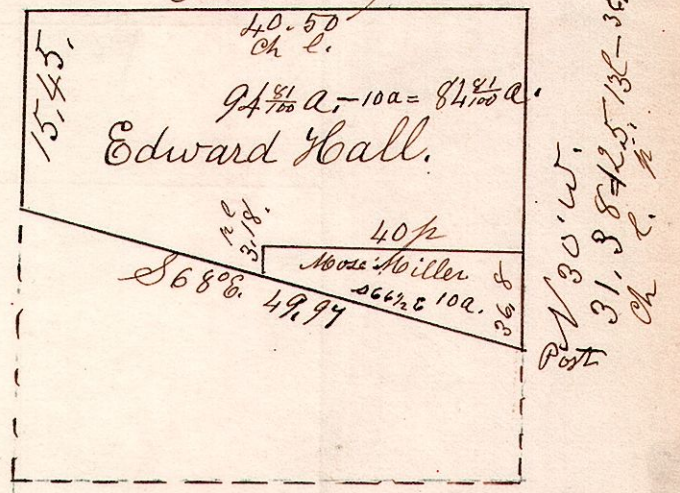 40.50
ch l.
15.45.
94 81/100 a. – 10a = 84 81/100 a.
Edward Hall.
p l
3.18.
40 p
Mose Miller
S66½ E 10a.
36,8
S68°E. 49,97
Post
N 30' W.
31.38
ch l.